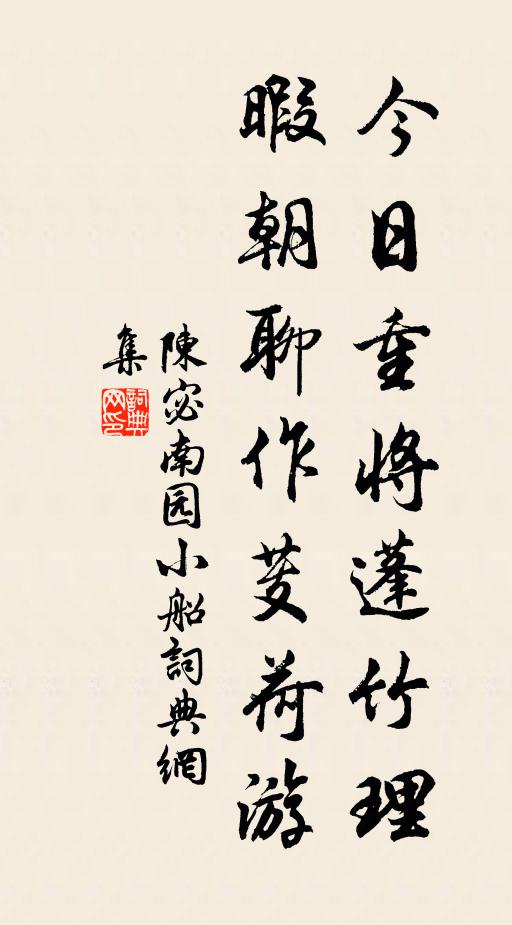 今日重將蓬竹理
暇朝聊作芰荷游
陳宓南园小船詞典網
集
詞典網印